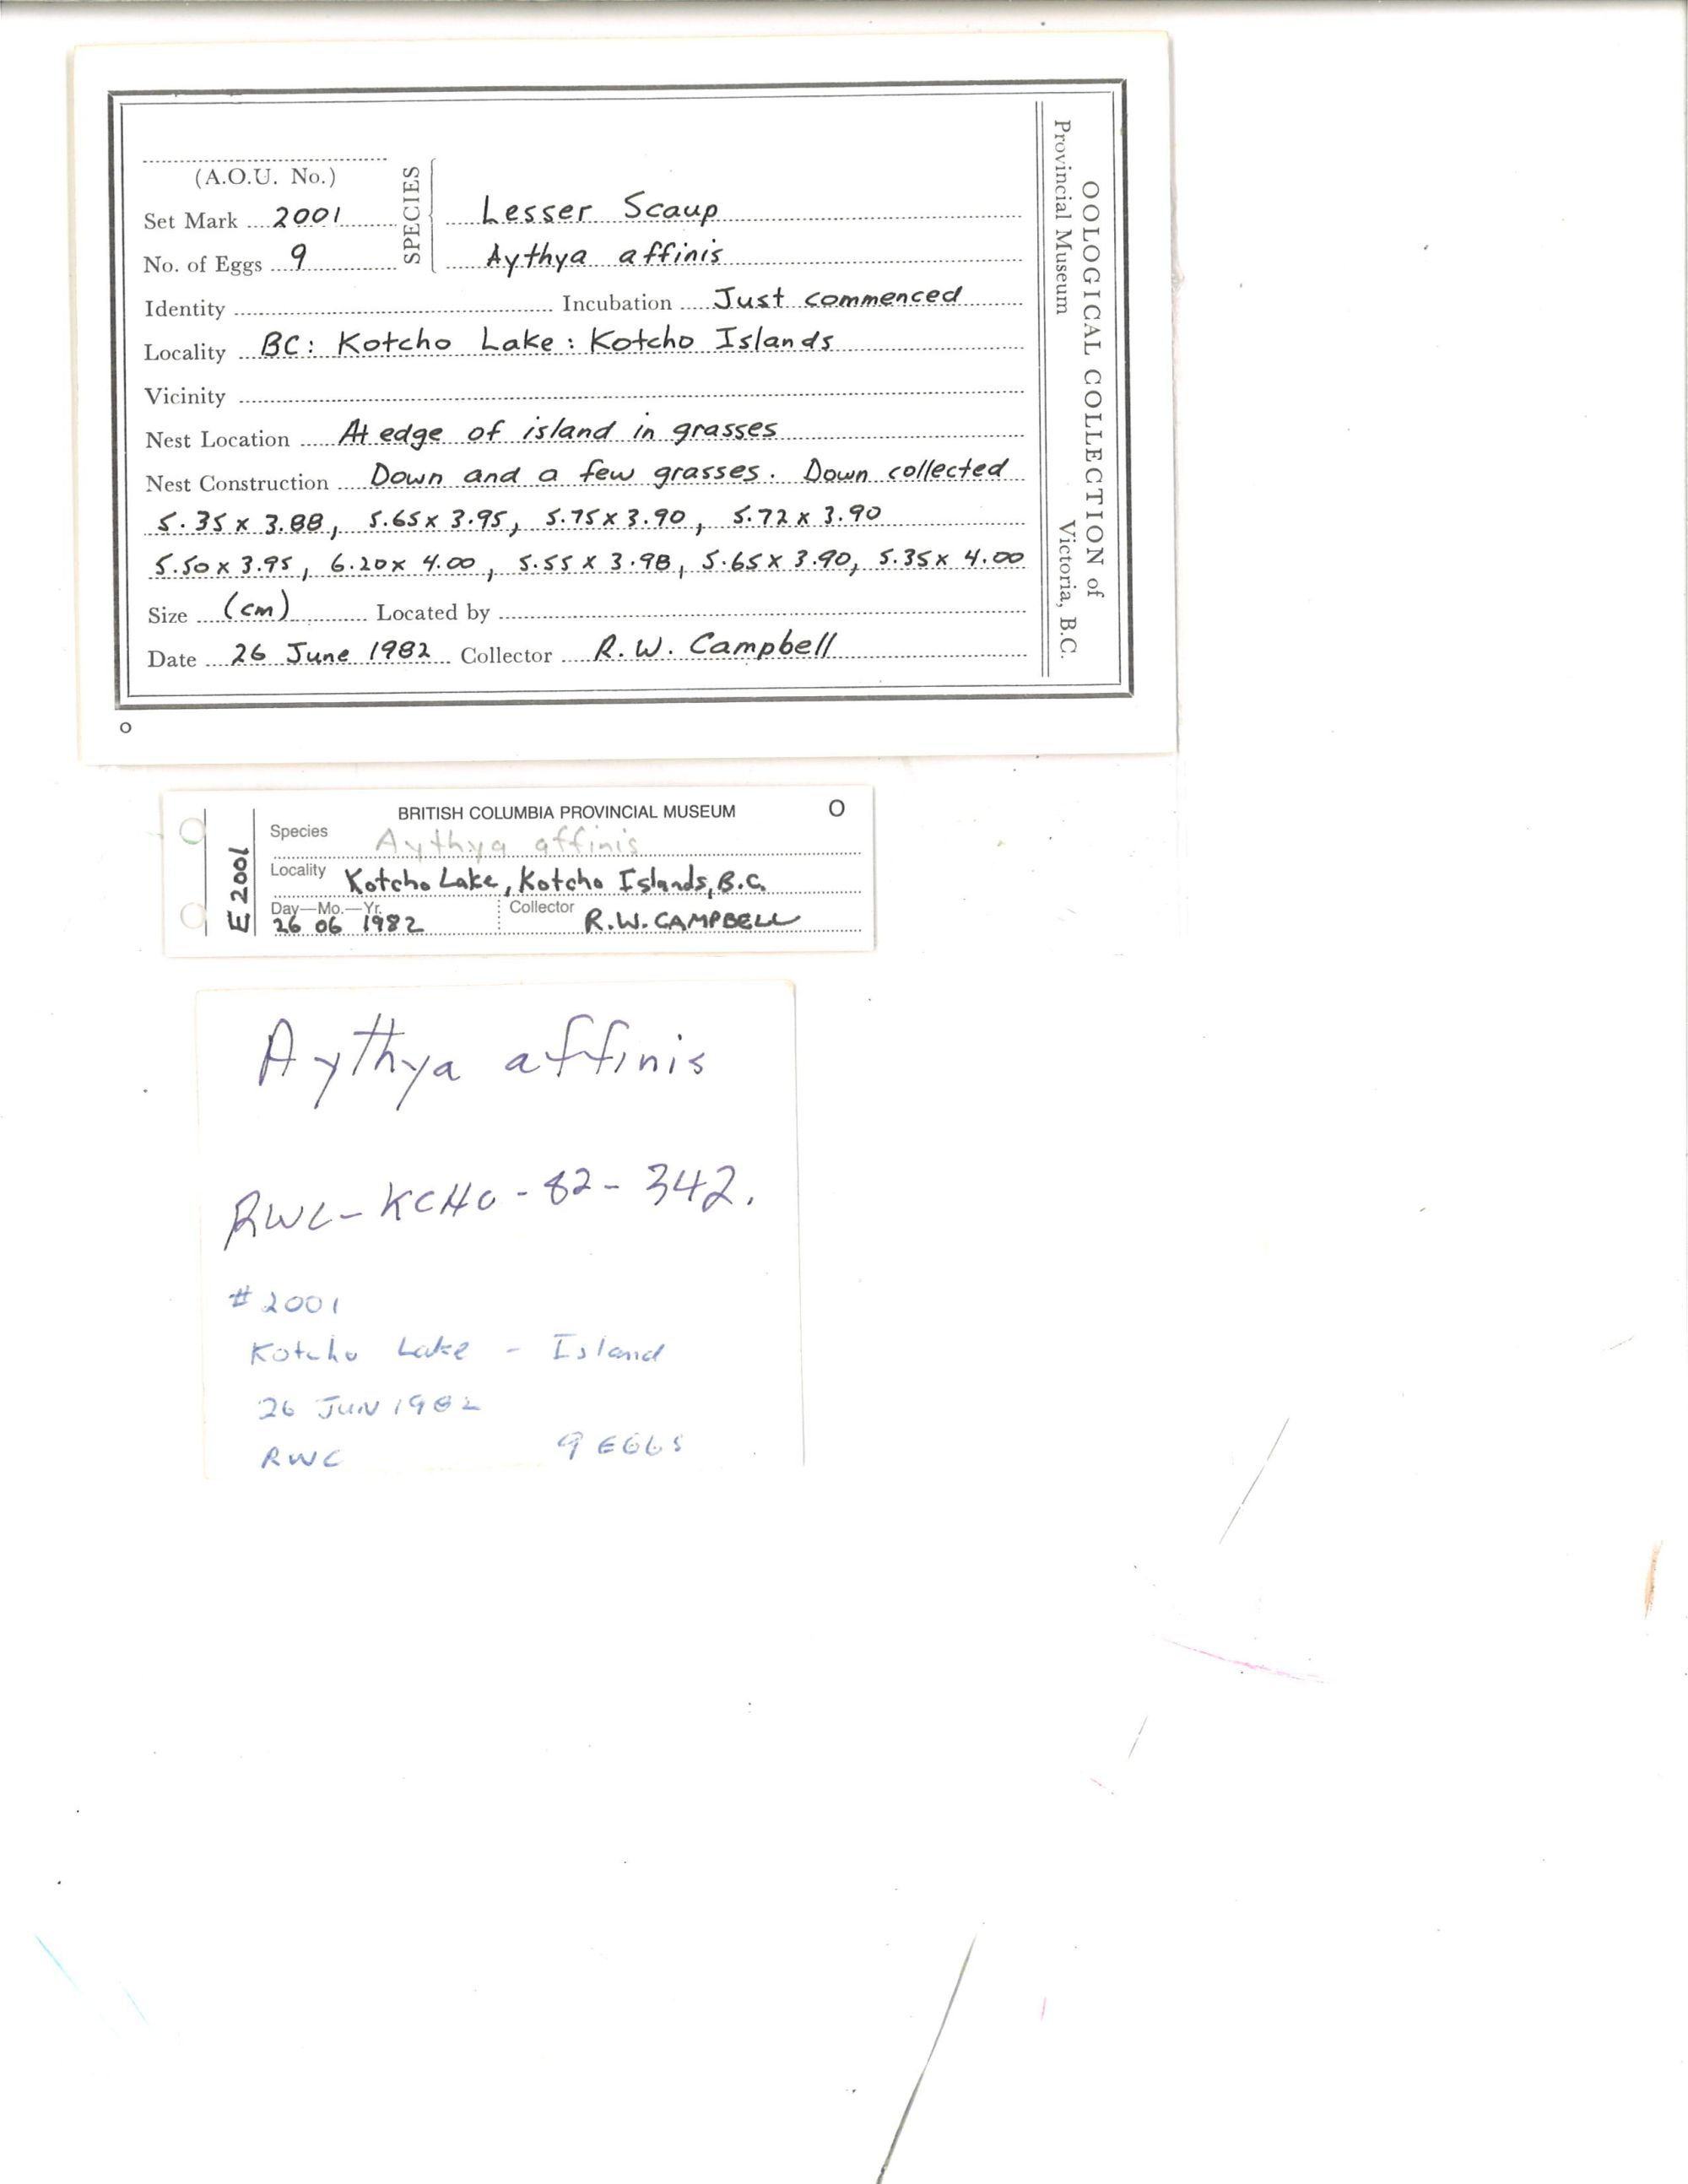 (A.O.U. No.)
SPECIES
Set Mark 2001 Lesser Scaup
No. of Eggs 9 Aythya affinis
Identity Incubation Just commenced
Locality BC: Kotcho Lake: Kotcho Islands
Vicinity
Nest Location At edge of island in grasses
Nest Construction Down and a few grasses. Down collected
5.35 x 3.88, 5.65 x 3.95, 5.75 x 3.90, 5.72 x 3.90
5.50 x 3.95, 6.20 x 4.00, 5.55 x 3.98, 5.65 x 3.90, 5.35 x 4.00
Size (cm) Located by
Date 26 June 1982 Collector R. W. Campbell
OOLOGICAL COLLECTION of
Provincial Museum Victoria, B.C.
O
BRITISH COLUMBIA PROVINCIAL MUSEUM O
E 2001
Species Aythya affinis
Locality Kotcho Lake, Kotcho Islands, B.C.
Day—Mo.—Yr. Collector
26 06 1982 R.W. CAMPBELL
Aythya affinis
RWC-KCHO-82-342.
#2001
Kotcho Lake - Island
26 JUN 1982
RWC 9 EGGS